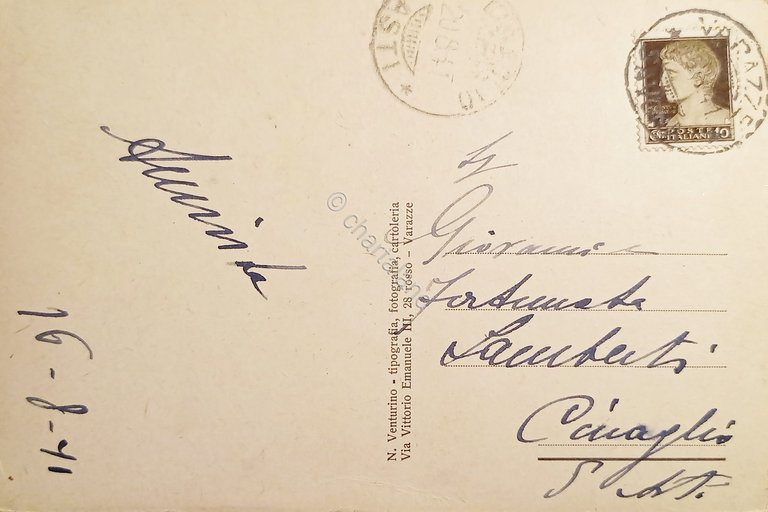 16-8-41
N. Venturino - tipografia, fotografia, cartoleria
Via Vittorio Emanuele III, 28 rosso - Varazze
ASTI
VARAZZE
POSTE
ITALIANE
10
Giovanni e
Fortunata
Lamberti
Cinaglio
Asti